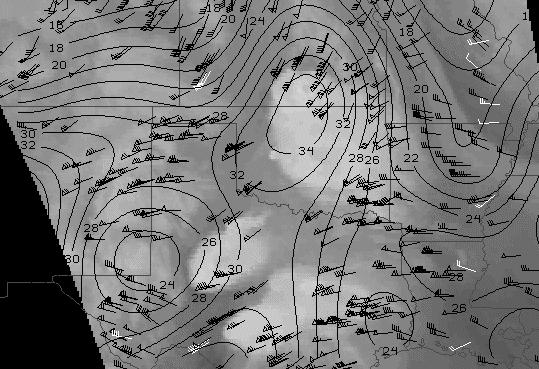 18 20 24
18
18
18
20
30
20
28
30
32
32
34
28 26 22
32
24
28
26
30
30
24
28
28
26
24